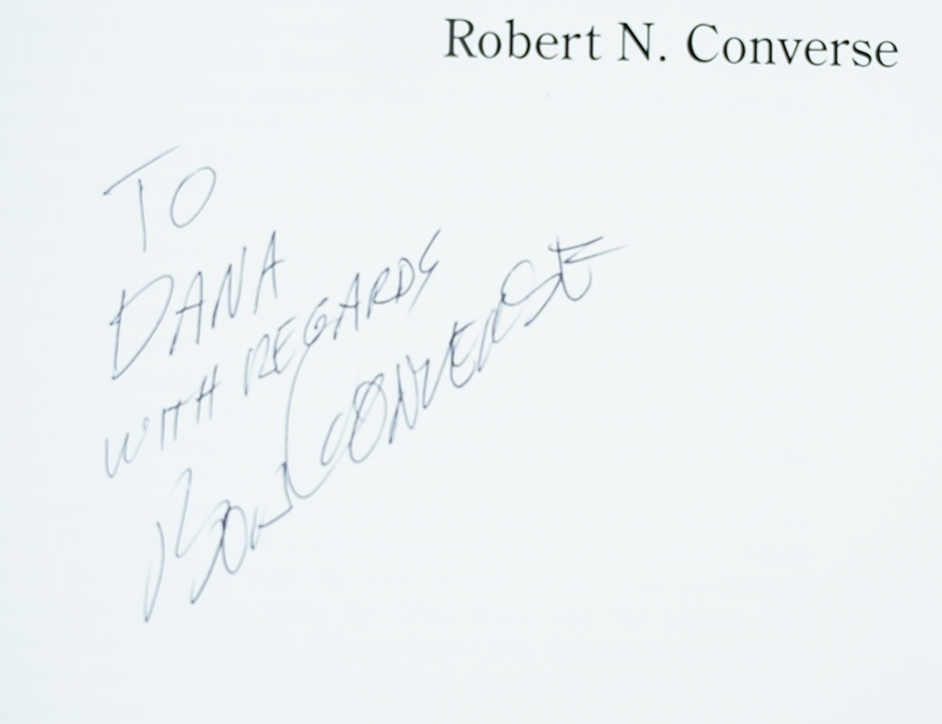 Robert N. Converse
TO
DANA
WITH REGARDS
BOB CONVERSE